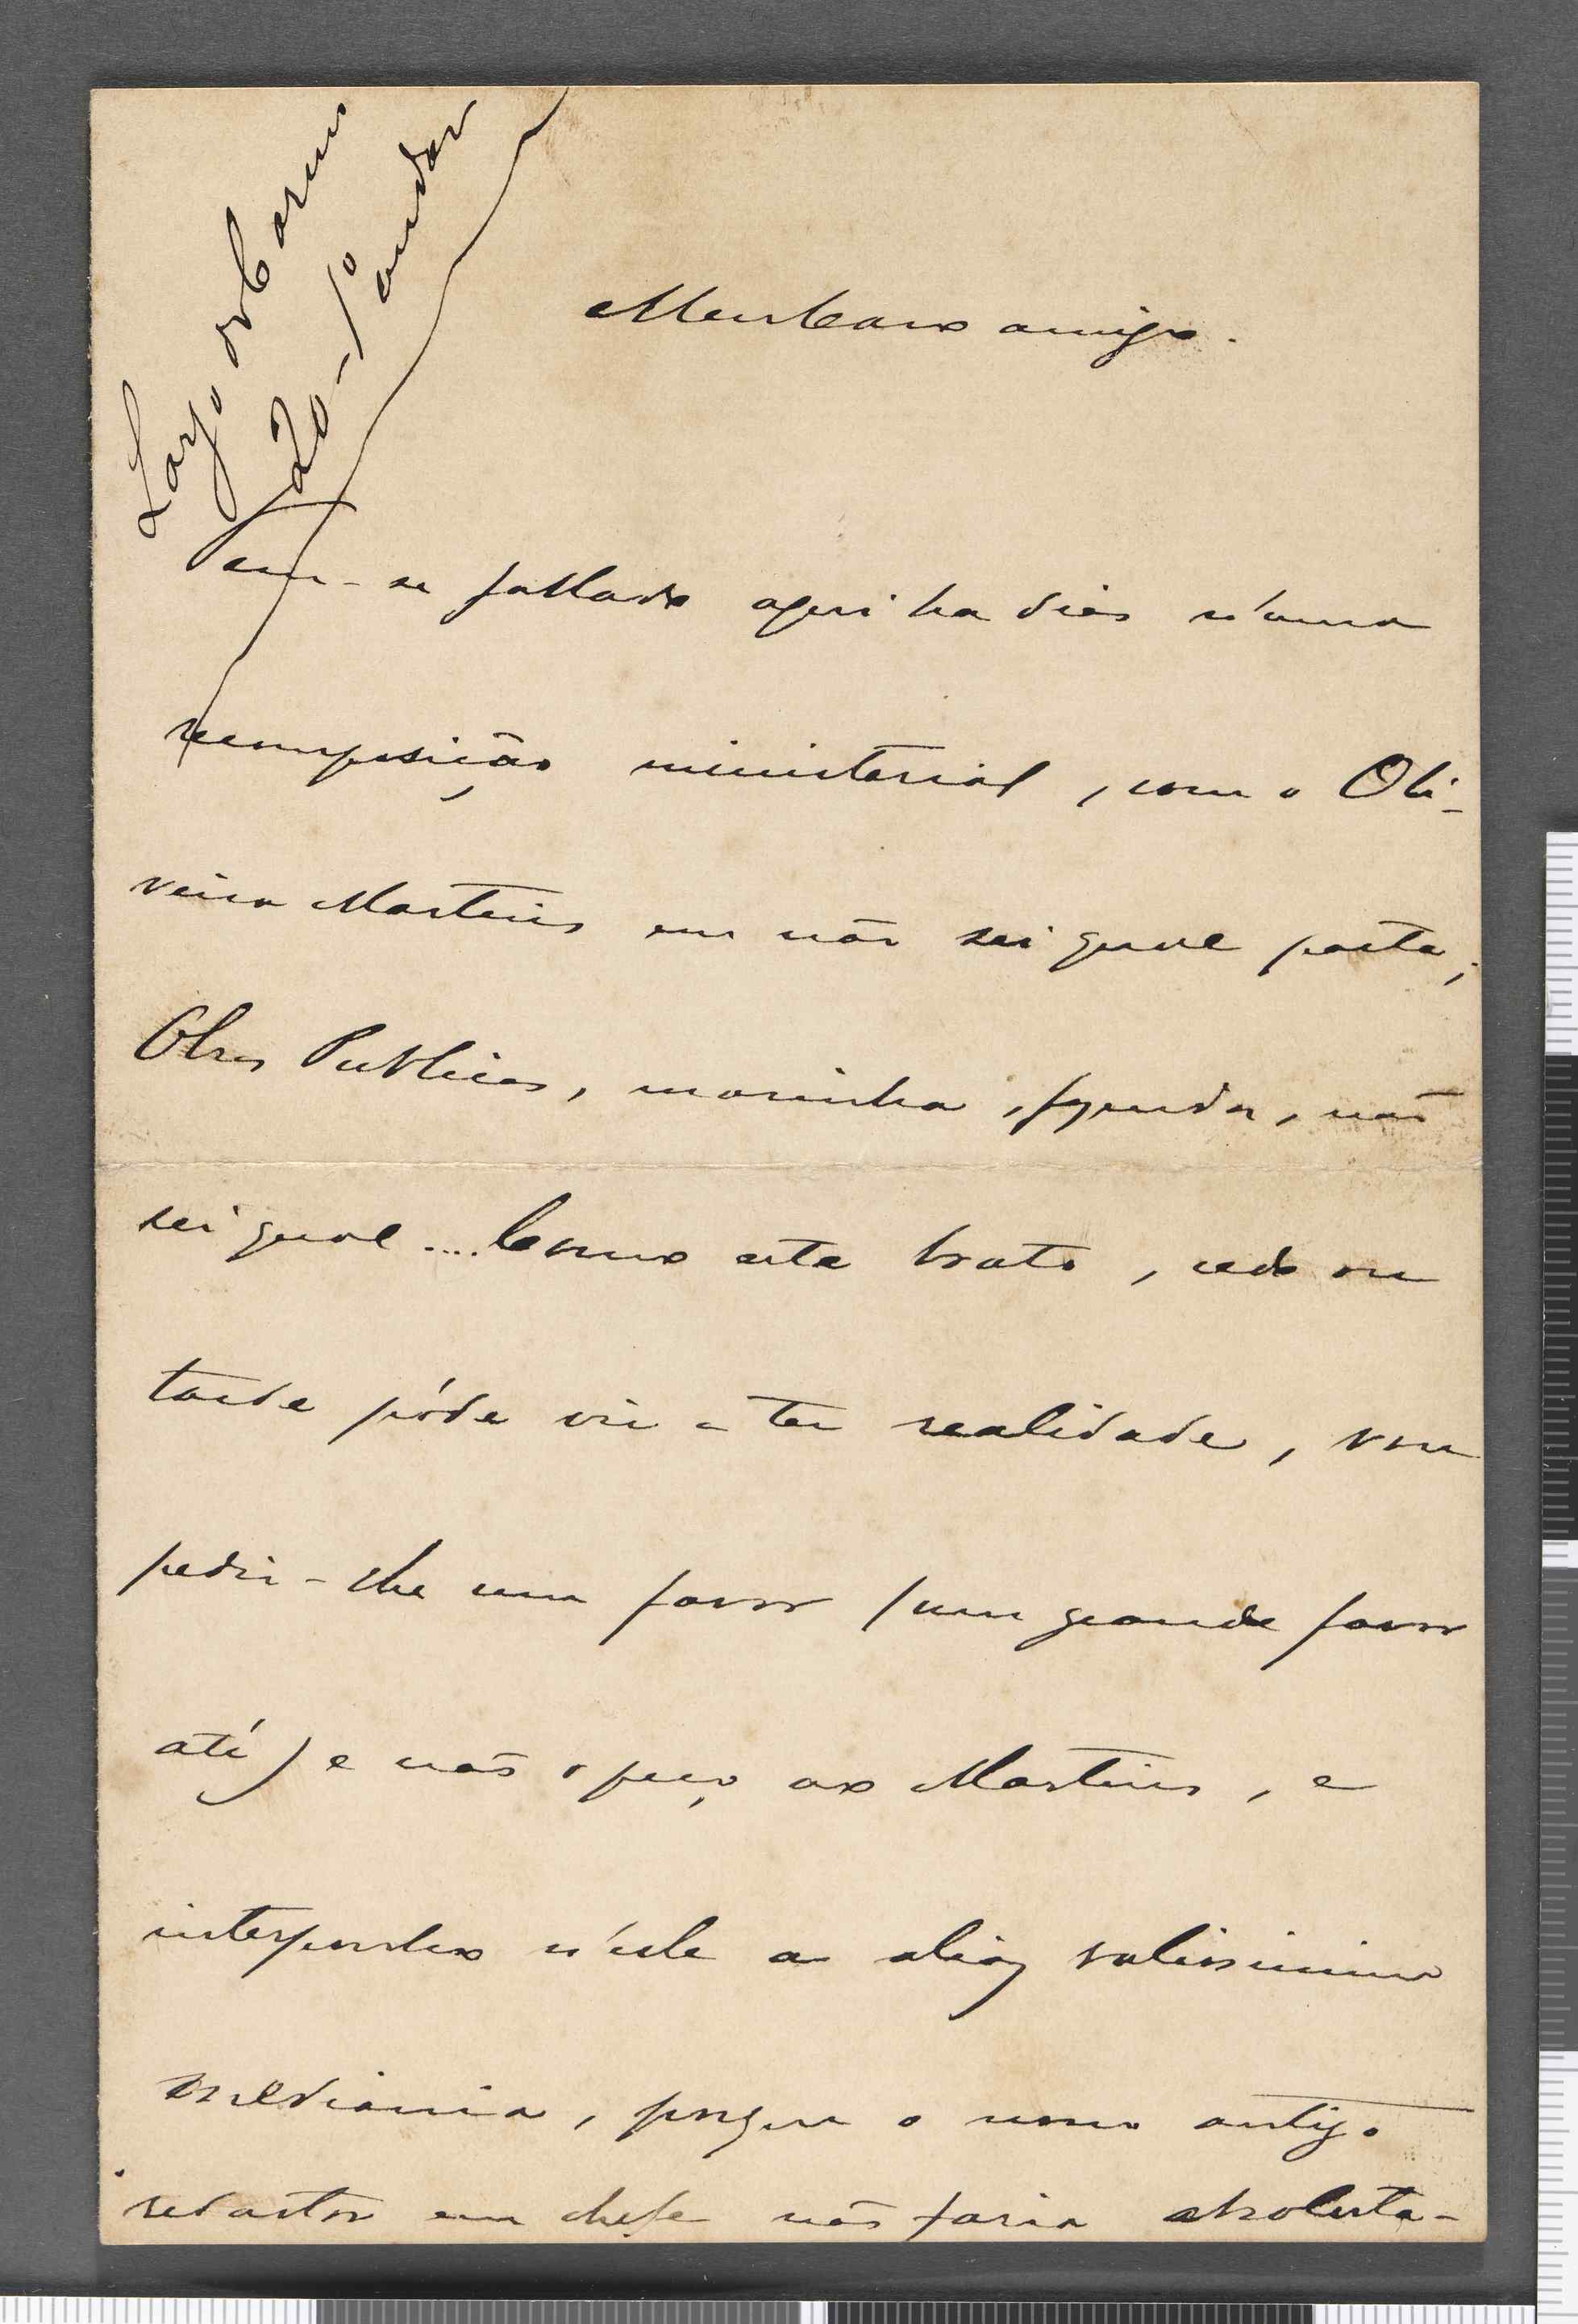 Largo do Carmo
20-1º andar
Meu Caro amigo.
Tem-se fallado aqui ha dias n'uma
recomposição ministerial, com o Oli-
veira Martins em não sei qual pasta;
Obras Publicas, marinha, fazenda, não
sei qual.... Como este boato, cedo ou
tarde póde vir a ter realidade, vou
pedir-lhe um favor (um grande favor
até) e não o peço ao Martins, e
n'este a aliaz valiosissima
, porque o nosso antigo
redactor em chefe não faria absoluta-